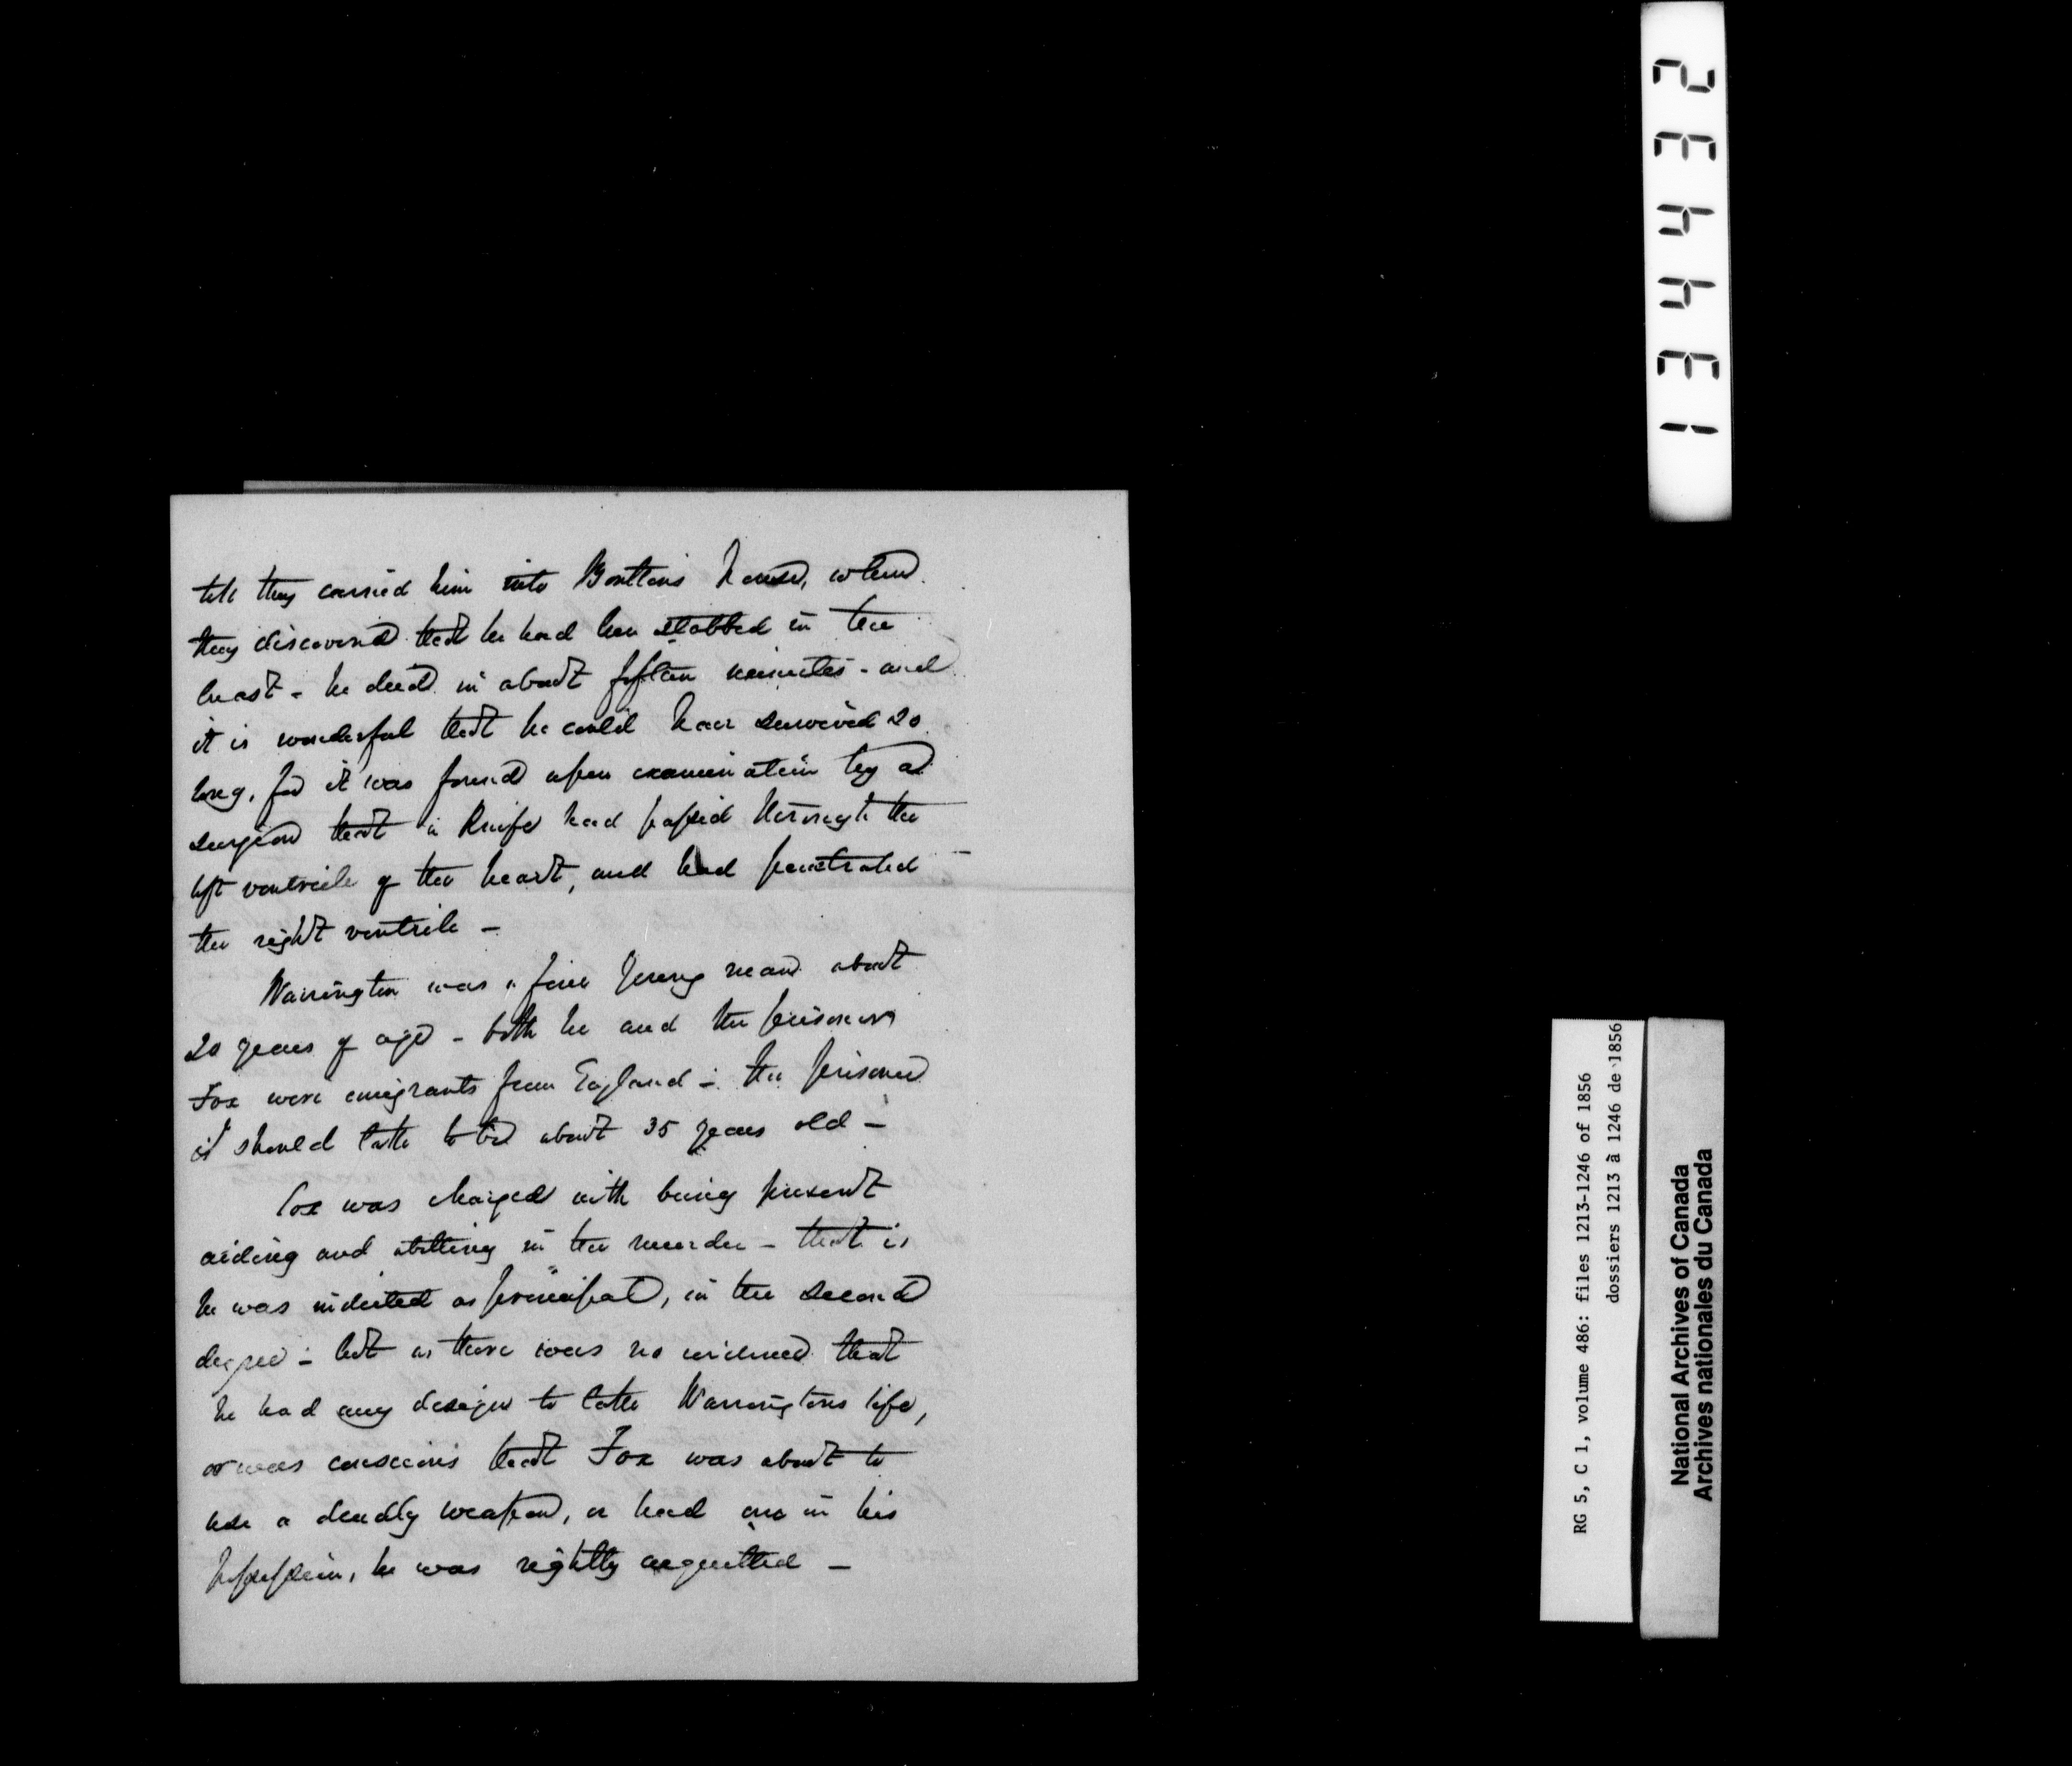 till they carried him into Boultons house, where
they discovered that he had been stabbed in the
breast - he died in about fifteen minutes - and
it is wonderful that he could have survived so
long, for it was found upon examination by a
surgeon that a knife had passed through the
left ventricle of the heart, and had penetrated -
the right ventricle -
Warrington was a fine young man about
20 years of age - both he and the prisoner
Fox were emigrants from England - the prisoner
I should take to be about 35 years old -
Cox was charged with being present
aiding and abetting in the murder - that is
he was indicted as principal, in the second
degree - but as there was no evidence that
he had any design to take Warringtons life,
or was conscious that Fox was about to
use a deadly weapon, or had one in his
possession, he was rightly acquitted -
134432
RG 5, C 1, volume 486: files 1213-1246 of 1856
dossiers 1213 à 1246 de 1856
National Archives of Canada
Archives nationales du Canada